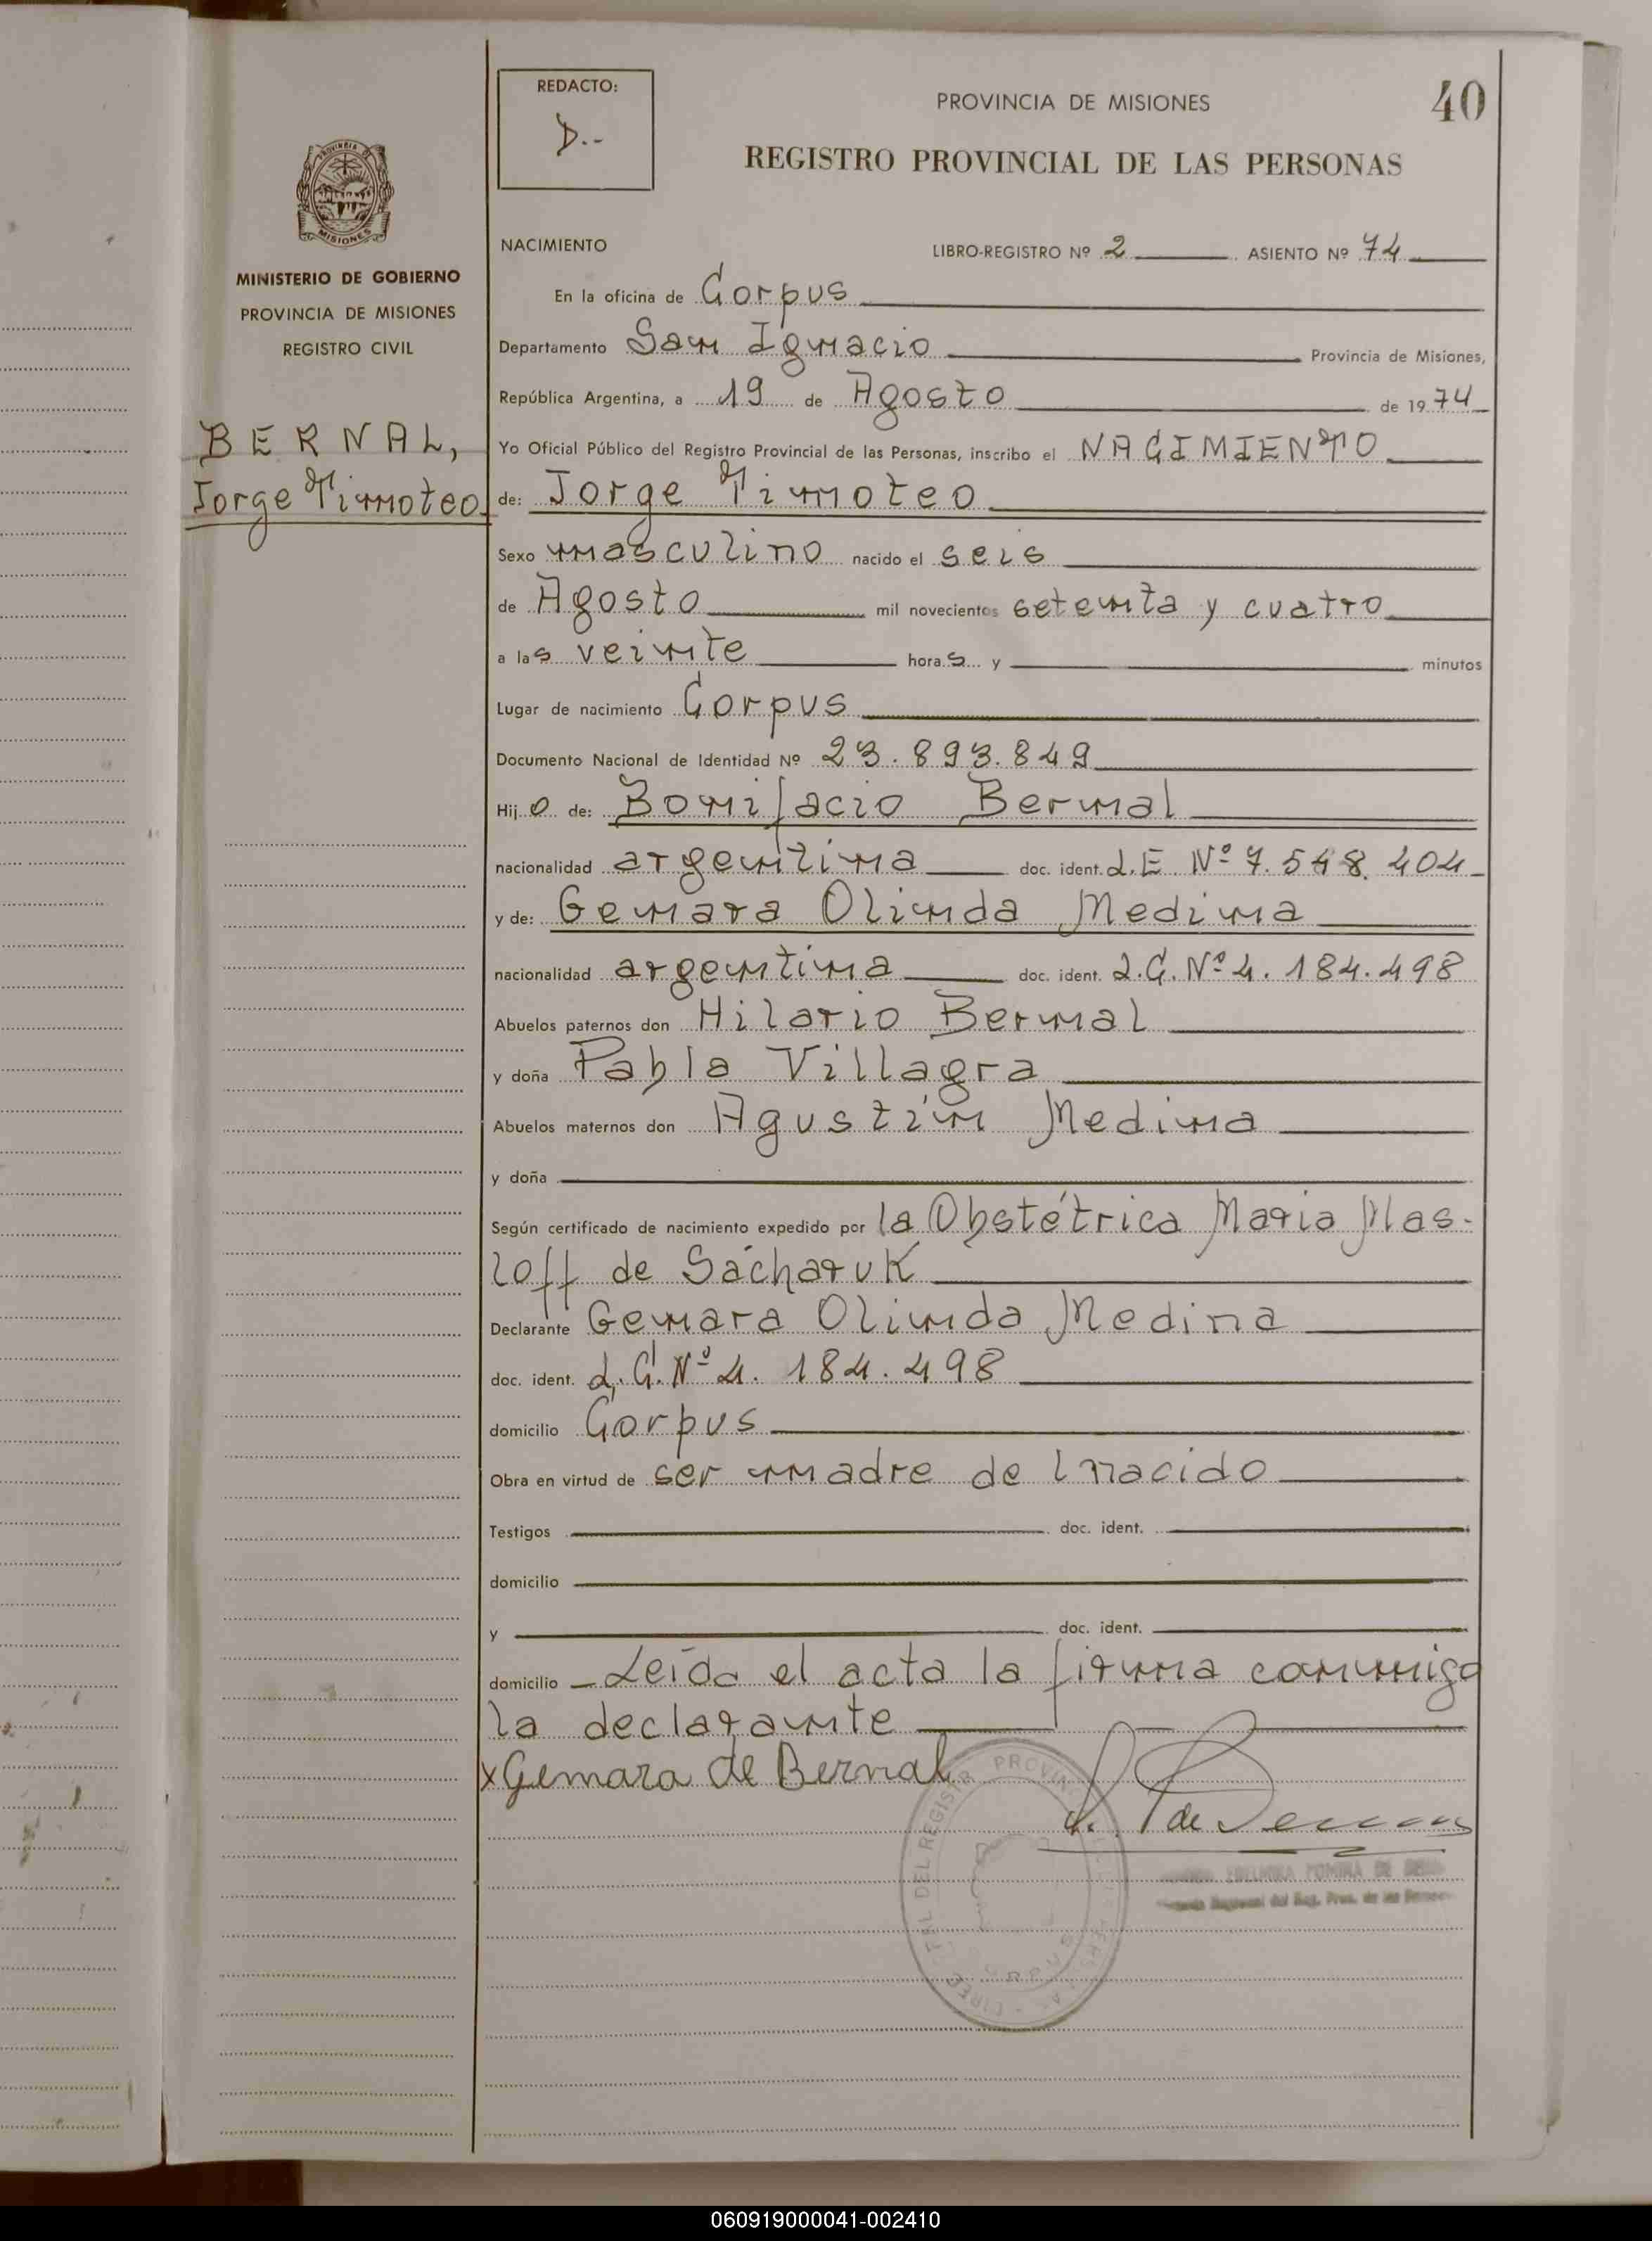 REDACTO:
D.-
PROVINCIA DE MISIONES
40
REGISTRO PROVINCIAL DE LAS PERSONAS
MISIONES
MINISTERIO DE GOBIERNO
PROVINCIA DE MISIONES
REGISTRO CIVIL
BERNAL,
Jorge Timoteo
NACIMIENTO LIBRO-REGISTRO Nº 2 ASIENTO Nº 74
En la oficina de Corpus
Departamento San Ignacio Provincia de Misiones,
República Argentina, a 19 de Agosto de 1974
Yo Oficial Público del Registro Provincial de las Personas, inscribo el NACIMIENTO
de: Jorge Timoteo
Sexo masculino nacido el seis
de Agosto mil novecientos setenta y cuatro
a las veinte horas y minutos
Lugar de nacimiento Corpus
Documento Nacional de Identidad Nº 23.893.849
Hijo de: Bonifacio Bernal
nacionalidad argentina doc. ident. L.E Nº 7.548.404
y de: Genara Olinda Medina
nacionalidad argentina doc. ident. L.C. Nº 4.184.498
Abuelos paternos don Hilario Bernal
y doña Pabla Villagra
Abuelos maternos don Agustín Medina
y doña
Según certificado de nacimiento expedido por la Obstétrica Maria Mas-
loff de Sacharuk
Declarante Genara Olinda Medina
doc. ident. L.C. Nº 4.184.498
domicilio Corpus
Obra en virtud de ser madre de l nacido
Testigos doc. ident.
domicilio
y doc. ident.
domicilio - Leída el acta la firma conmigo
la declarante
x Genara de Bernal
060919000041-002410